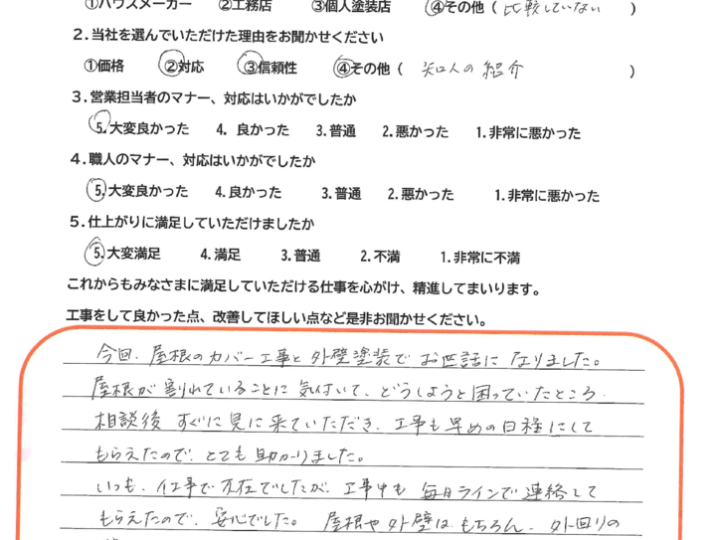 ①ハウスメーカー ②工務店 ③個人塗装店 ④その他 ( 比較していない )
2.当社を選んでいただけた理由をお聞かせください
①価格 ②対応 ③信頼性 ④その他 ( 知人の紹介 )
3.営業担当者のマナー、対応はいかがでしたか
5.大変良かった 4.良かった 3.普通 2.悪かった 1.非常に悪かった
4.職人のマナー、対応はいかがでしたか
5.大変良かった 4.良かった 3.普通 2.悪かった 1.非常に悪かった
5.仕上がりに満足していただけましたか
5.大変満足 4.満足 3.普通 2.不満 1.非常に不満
これからもみなさまに満足していただける仕事を心がけ、精進してまいります。
工事をして良かった点、改善してほしい点など是非お聞かせください。
今回、屋根のカバー工事と外壁塗装でお世話になりました。
屋根が割れていることに気付いて、どうしようと困っていたところ、
相談後すぐに見に来ていただき、工事も早めの日程にして
もらえたので、とても助かりました。
いつも、仕事で不在でしたが、工事中も毎日ラインで連絡して
もらえたので、安心でした。屋根や外壁はもちろん、外回りの